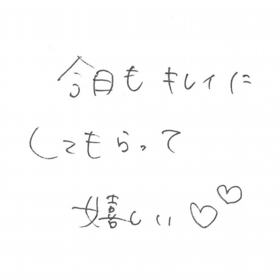 今日もキレイに
してもらって
嬉しい♡♡